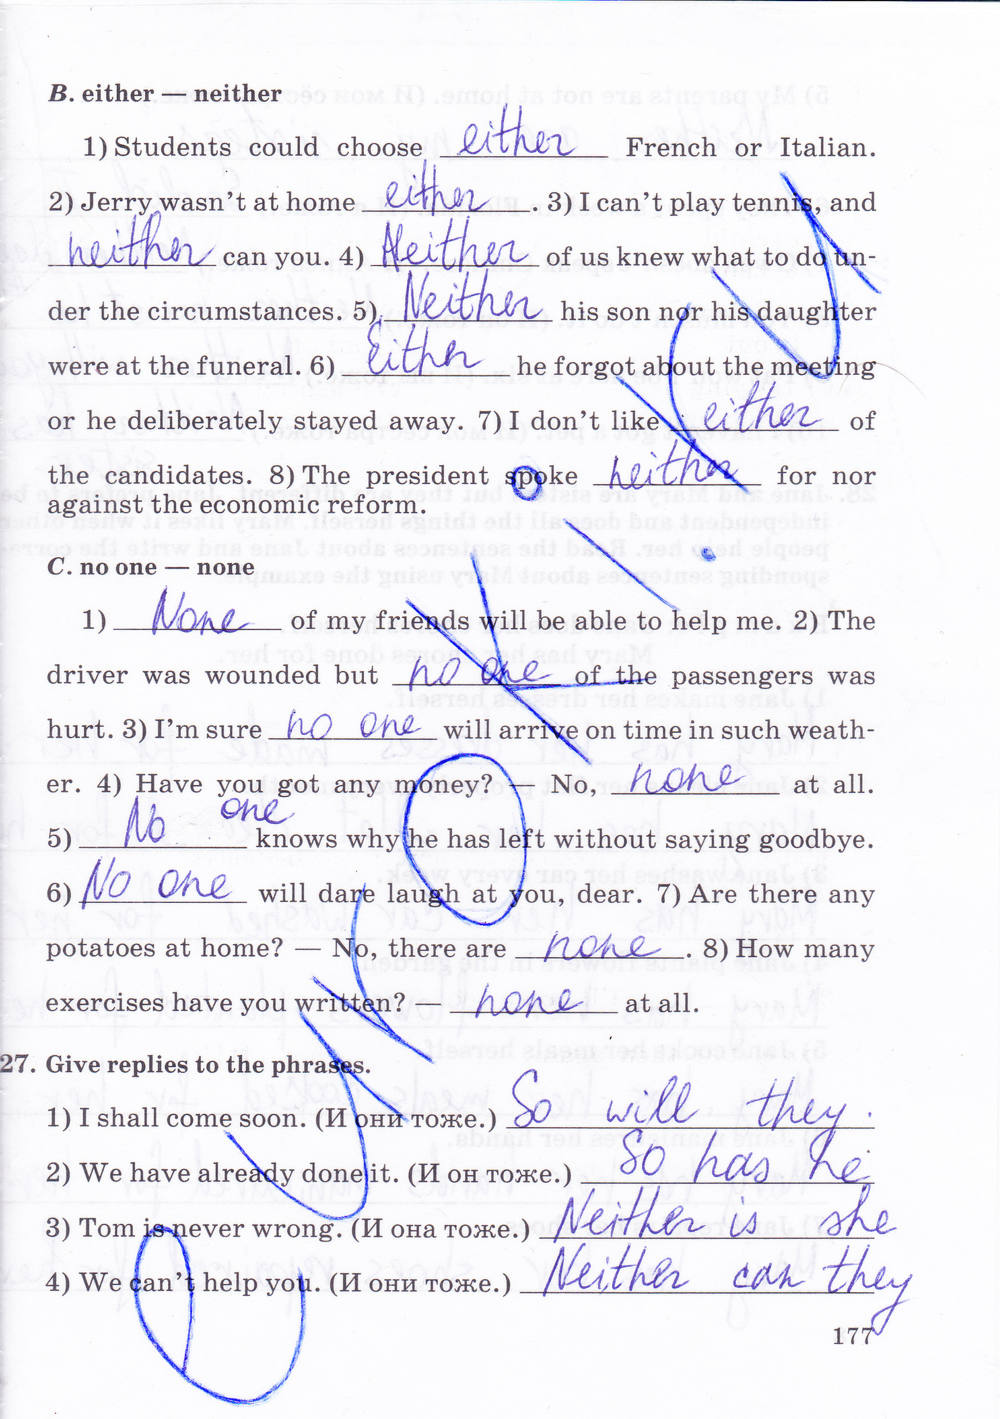 B. either — neither
1) Students could choose either French or Italian.
2) Jerry wasn't at home either. 3) I can't play tennis, and
neither can you. 4) Neither of us knew what to do un-
der the circumstances. 5) Neither his son nor his daughter
were at the funeral. 6) Either he forgot about the meeting
or he deliberately stayed away. 7) I don't like either of
the candidates. 8) The president spoke neither for nor
against the economic reform.
C. no one — none
1) None of my friends will be able to help me. 2) The
driver was wounded but no one of the passengers was
hurt. 3) I'm sure no one will arrive on time in such weath-
er. 4) Have you got any money? — No, none at all.
5) No one knows why he has left without saying goodbye.
6) No one will dare laugh at you, dear. 7) Are there any
potatoes at home? — No, there are none. 8) How many
exercises have you written? — none at all.
27. Give replies to the phrases.
1) I shall come soon. (И они тоже.) So will they.
2) We have already done it. (И он тоже.) So has he
3) Tom is never wrong. (И она тоже.) Neither is she
4) We can't help you. (И они тоже.) Neither can they
177